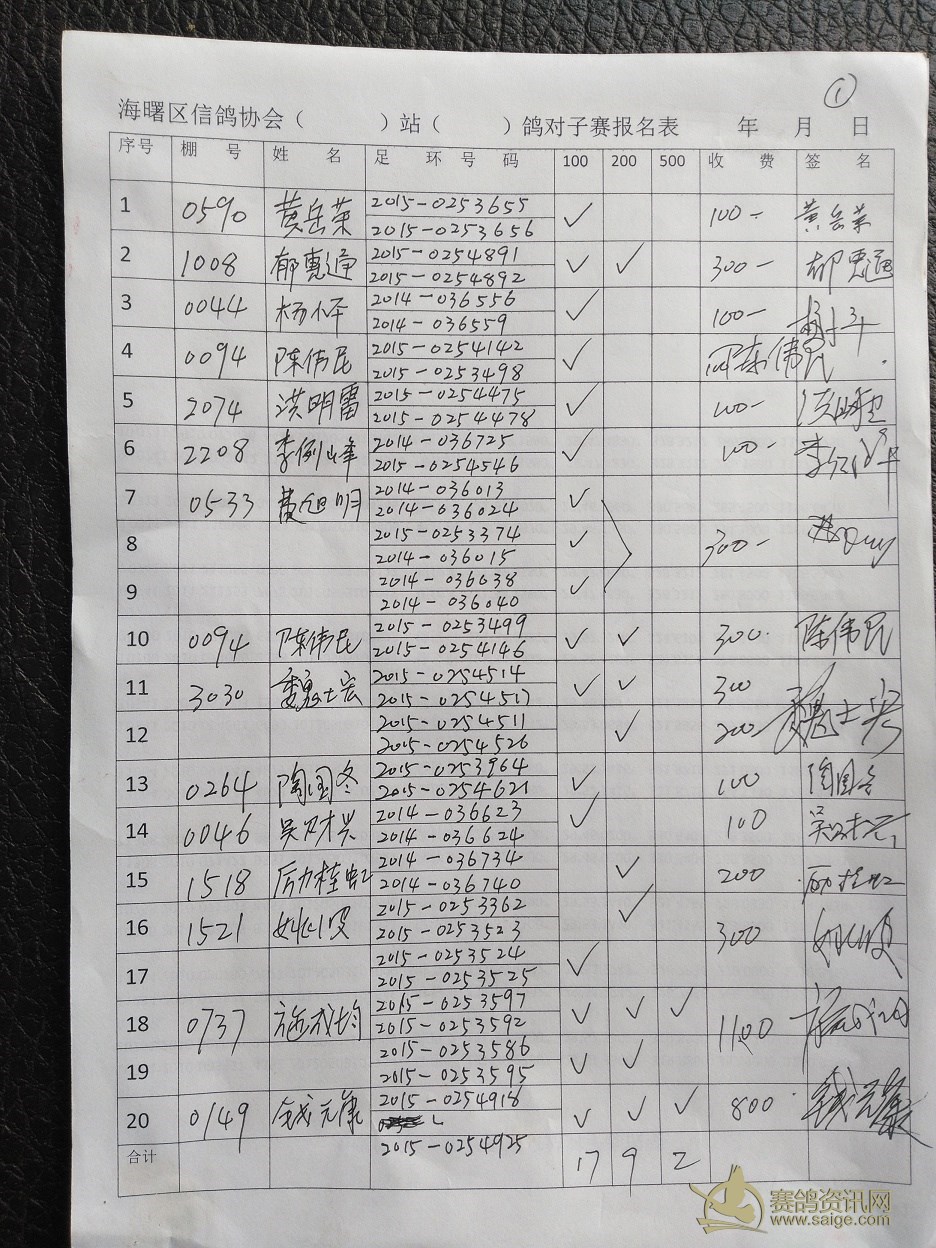 ①
海曙区信鸽协会（ ）站（ ）鸽对子赛报名表 年 月 日
序号 棚 号 姓 名 足 环 号 码 100 200 500 收 费 签 名
1 0590 黄岳荣 2015-0253655 ✓ 100- 黄岳荣
2015-0253656
2 1008 郁惠通 2015-0254891 ✓ ✓ 300- 郁惠通
2015-0254892
3 0044 杨小平 2014-036556 ✓ 100-
2014-036559
4 0094 陈伟民 2015-0254142 ✓ 陈伟民
2015-0253498
5 2074 洪明雷 2015-0254475 ✓ 100-
2015-0254478
6 2208 李例峰 2014-036725 ✓ 100-
2015-0254546
7 0533 黄旭明 2014-036013 ✓
2014-036024
8 2015-0253374 ✓ 300-
2014-036015
9 2014-036038 ✓
2014-036040
10 0094 陈伟民 2015-0253499 ✓ ✓ 300. 陈伟民
2015-0254146
11 3030 魏士宏 2015-0254514 ✓ ✓ 300
2015-0254517
12 2015-0254511 ✓ 200- 魏士宏
2015-0254526
13 0264 陶国冬 2015-0253964 ✓ 100 陶国冬
2015-0254621
14 0046 吴财兴 2014-036623 ✓ 100
2014-036624
15 1518 励桂虹 2014-036734 ✓ 200 励桂虹
2014-036740
16 1521 2015-0253362 ✓ 300
2015-0253523
17 2015-0253524 ✓
2015-0253525
18 0737 施成均 2015-0253597 ✓ ✓ ✓ 1100
2015-0253592
19 2015-0253586 ✓ ✓
2015-0253595
20 0149 钱元康 2015-0254918 ✓ ✓ ✓ 800 钱元康
合计 2015-0254925 17 9 2
赛鸽资讯网
www.saige.com